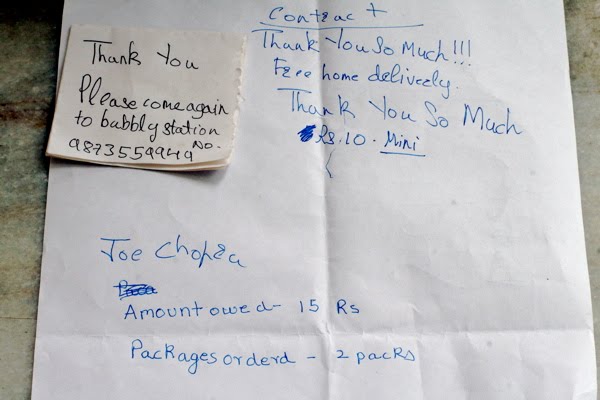 Thank You
Please come again
to bubbly station
No.
9873559949
Contract
Thank You So Much!!!
Free home delivery.
Thank You So Much
Rs.10. Mini
Joe Chopra
Amount owed- 15 Rs
Packages orderd - 2 packs